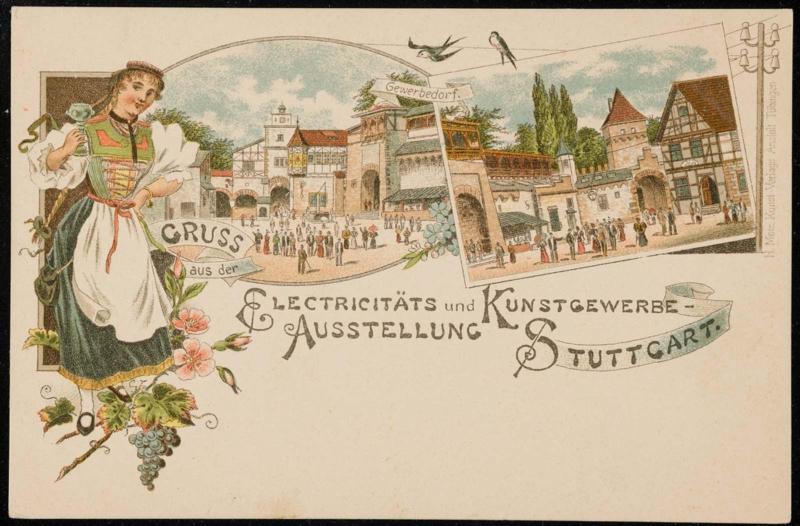 Gewerbedorf.
GRUSS
aus der
ELECTRICITÄTS und KUNSTGEWERBE-
AUSSTELLUNG STUTTGART.
H. Metz Kunst-Verlags-Anstalt Tübingen